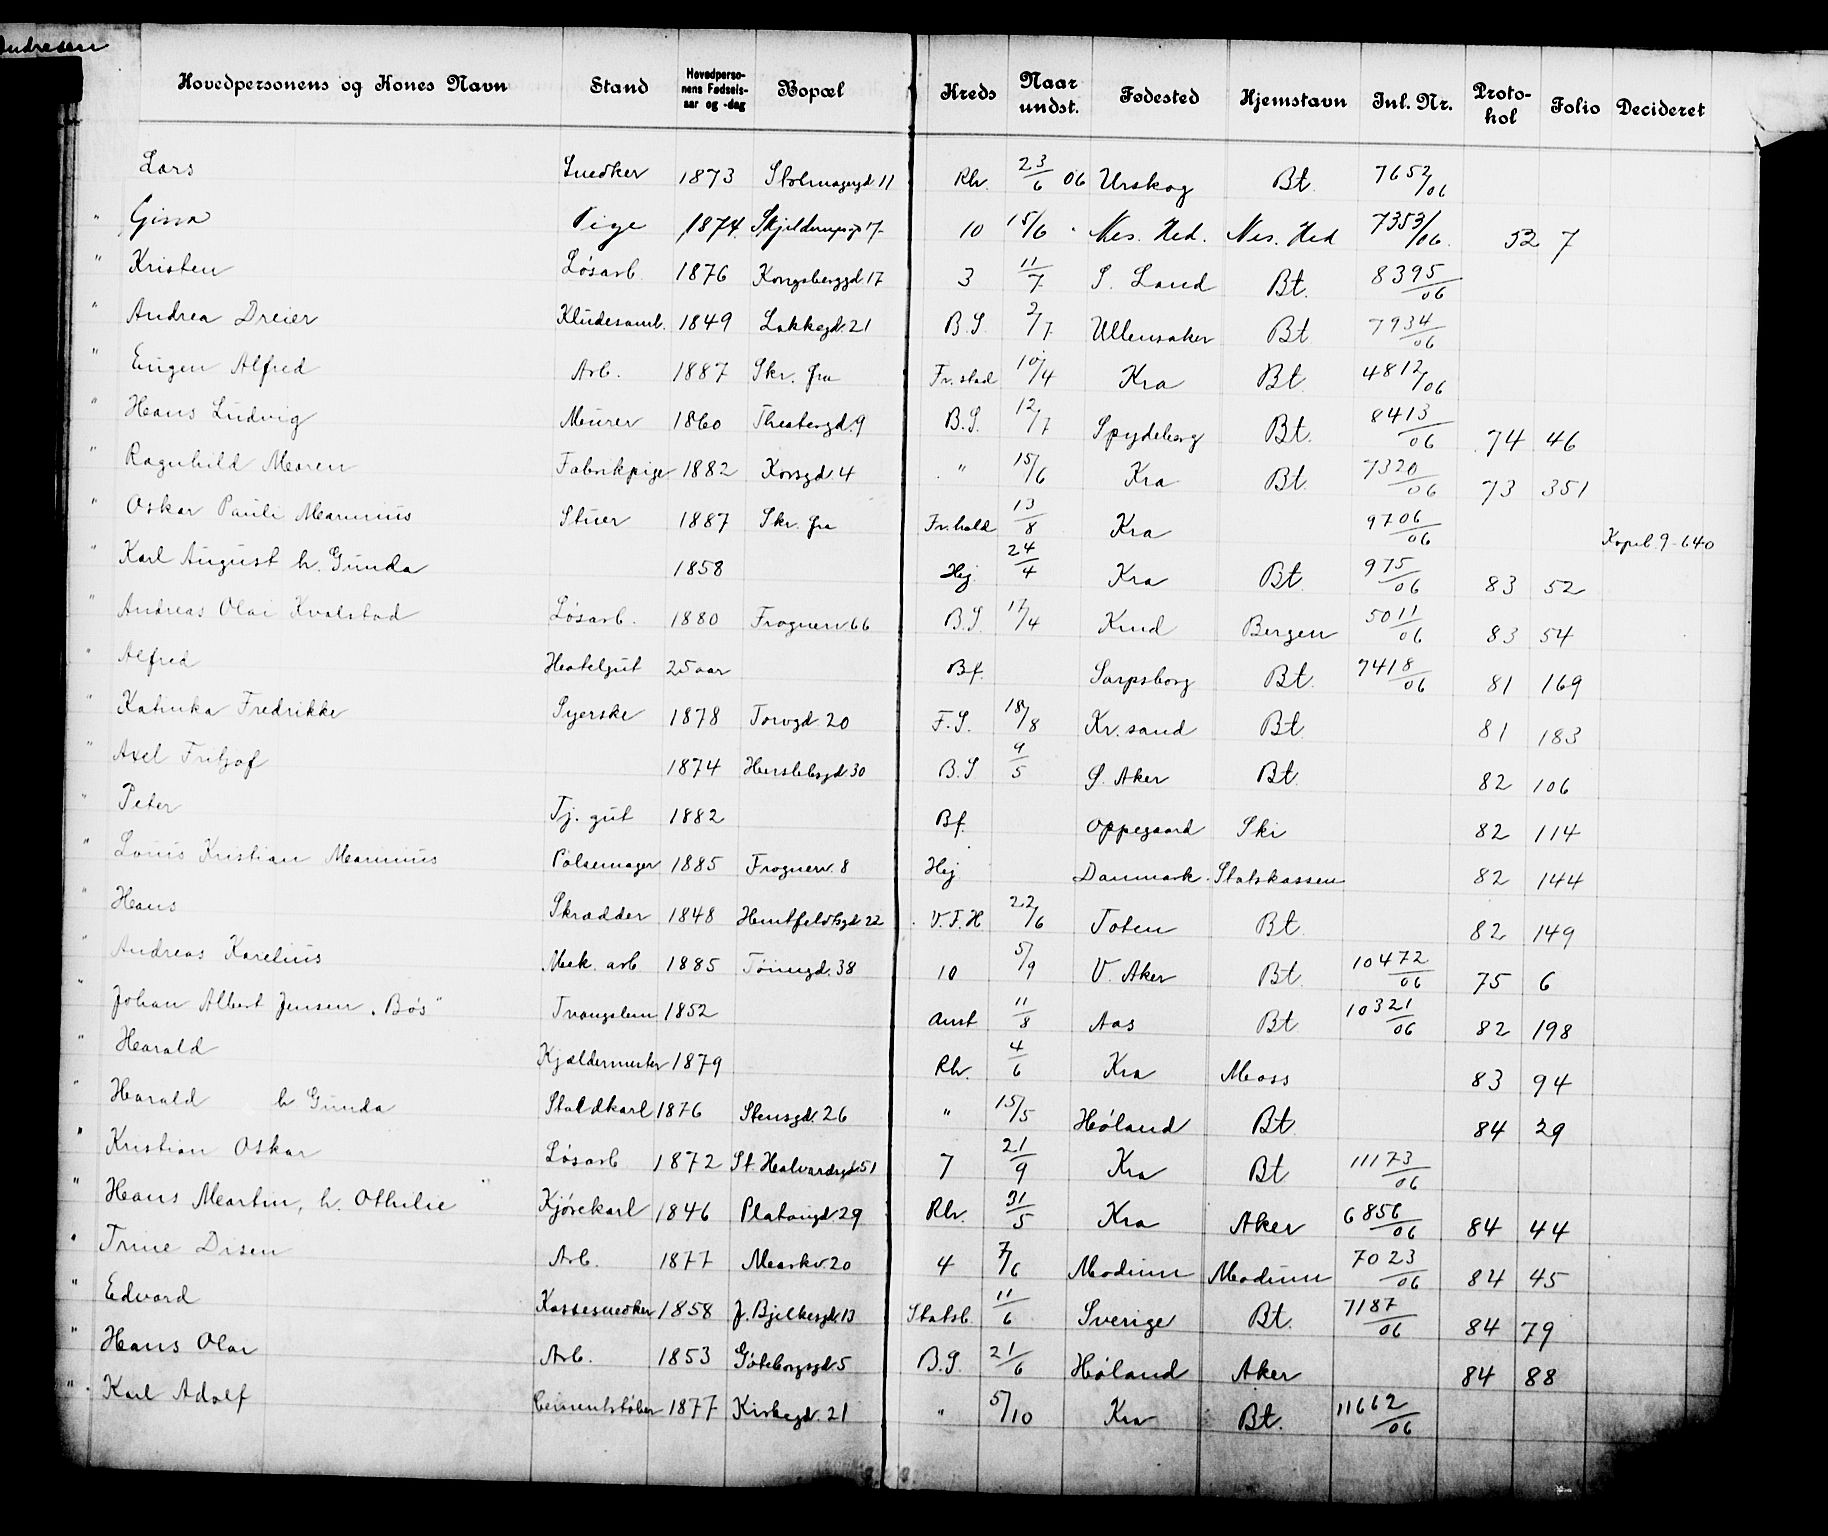 Andresen
Hovedpersonens og Kones Navn Stand Hovedpersonens Fødselsaar og -dag Bopæl Kreds Naar undst. Fødested Hjemstavn Inl. Nr. Protokol Folio Decideret
Lars Snedker 1873 Stolmagergd 11 Rh. 23/6 06 Urskog Bt. 7652/06
" Gina Pige 1874. Skjelderupsgd 17 10 15/6 " Nes. Hed. Nes. Hed 7353/06. 52 7
" Kristen Løsarb. 1876 Kongsberggd 17 3 11/7 S. Land Bt. 8395/06
" Andrea Dreier Kludesaml. 1849 Lakkegd. 21 B.S. 2/7 Ullensaker Bt 7934/06
" Eugen Alfred Arb. 1887 Skr. fra Fr.stad 10/4 Kra Bt. 4812/06
" Hans Ludvig Murer 1860 Theatergd. 9 B.S. 12/7 Spydeberg Bt. 8413/06 74 46
" Ragnhild Maren Fabrikpige 1882 Korsgd. 4 " 15/6 Kra Bt. 7320/06 73 351
" Oskar Pauli Marinius Stuer 1887 Skr. fra Fr.hald 13/8 Kra 9706/06 Kopib. 9-640
" Karl August h. Gunda 1858 Hej 24/4 Kra Bt. 975/06 83 52
" Andreas Olai Kvalstad Løsarb. 1880 Frognerv 66 B.S. 17/4 Kind Bergen 5011/06 83 54
" Alfred Hotelgut 25 aar Bf. Sarpsborg Bt. 7418/06 81 169
" Katinka Fredrikke Syerske 1878 Torvgd. 20 F.S. 18/8 Kr.sand Bt. 81 183
" Axel Fritjof 1874 Herslebsgd 30 B.S 9/5 S. Aker Bt. 82 106
" Peter Tj. gut 1882 Bf. Oppegaard Ski 82 114
" Louis Kristian Marinius Pølsemager 1885 Frognerv. 8 Hej Danmark Statskassen 82 144
" Hans Skrædder 1848 Huitfeldtsgd 22 V.F.H 22/6 Toten Bt. 82 149
" Andreas Karelius Mek. arb 1885 Tøiengd. 38 10 5/9 V. Aker Bt. 10472/06 75 6
" Johan Albert Jensen "Bøs" Tvangslem 1852 Anst 11/8 Aas Bt 10321/06 82 198
" Harald Kjældermester 1879 Rh. 4/6 Kra Moss 83 94
" Harald h Gunda Staldkarl 1876 Stensgd. 26 " 15/5 Høland Bt. 84 29
" Kristian Oskar Løsarb 1872 St. Halvardsgd 51 7 21/9 Kra Bt 11173/06
" Hans Martin, h. Othilie " Kjørekarl 1846 Platousgd. 29 Rh. 31/5 Kra Aker 6856/06 84 44
" Trine Disen Arb. 1877 Markv. 20 4 7/6 Modum Modum 7023/06 84 45
" Edvard Kassesnedker 1858 J. Bjelkesgd. 13 Statsb. 11/6 Sverige Bt. 7187/06 84 79
" Hans Olai Arb. 1853 Gøteborgsgd. 5 B.S. 21/6 Høland Aker 84 88
" Karl Adolf Cementstøber 1877 Kirkegd. 21 " 5/10 Kra Bt. 11662/06